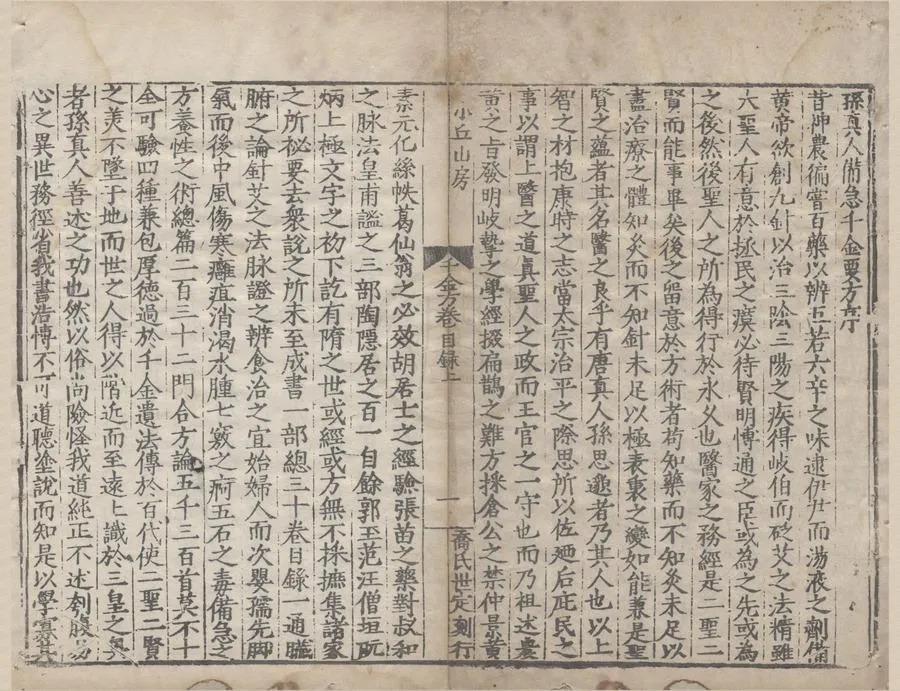 孫真人備急千金要方序
昔神農徧嘗百藥以辨五苦六辛之味逮伊尹而湯液之劑備
黃帝欲創九針以治三陰三陽之疾得岐伯而砭艾之法精雖
大聖人有意於拯民之瘼必待賢明博通之臣或為之先或為
之後然後聖人之所為得行於永久也醫家之務經是二聖二
賢而能事畢矣後之留意於方術者苟知藥而不知灸未足以
盡治療之體知灸而不知針未足以極表裏之變如能兼是聖
賢之蘊者其名醫之良乎有唐真人孫思邈者乃其人也以上
智之材抱康時之志當太宗治平之際思所以佐廼后庇民之
事以謂上醫之道真聖人之政而王官之一守也而乃祖述農
黃之旨發明岐摯之學經掇扁鵲之難方採倉公之禁仲景黃
小丘山房
千金方卷目録上
一
喬氏世定刻行
素元化絲帙葛仙翁之必效胡居士之經驗張苗之藥對叔和
之脉法皇甫謐之三部陶隱居之百一自餘郭玉范汪僧垣阮
炳上極文字之初下訖有隋之世或經或方無不採摭集諸家
之所秘要去衆說之所未至成書一部總三十卷目錄一通臟
腑之論針艾之法脉證之辨食治之宜始婦人而次嬰孺先脚
氣而後中風傷寒癰疽消渴水腫七竅之痾五石之毒備急之
方養性之術總篇二百三十二門合方論五千三百首莫不十
全可驗四種兼包厚德過於千金遺法傳於百代使二聖二賢
之美不墜于地而世之人得以階近而至遠上識於三皇之奧
者孫真人善述之功也然以俗尚險怪我道純正不述刳腹易
心之異世務徑省我書浩博不可道聽塗說而知是以學寡其